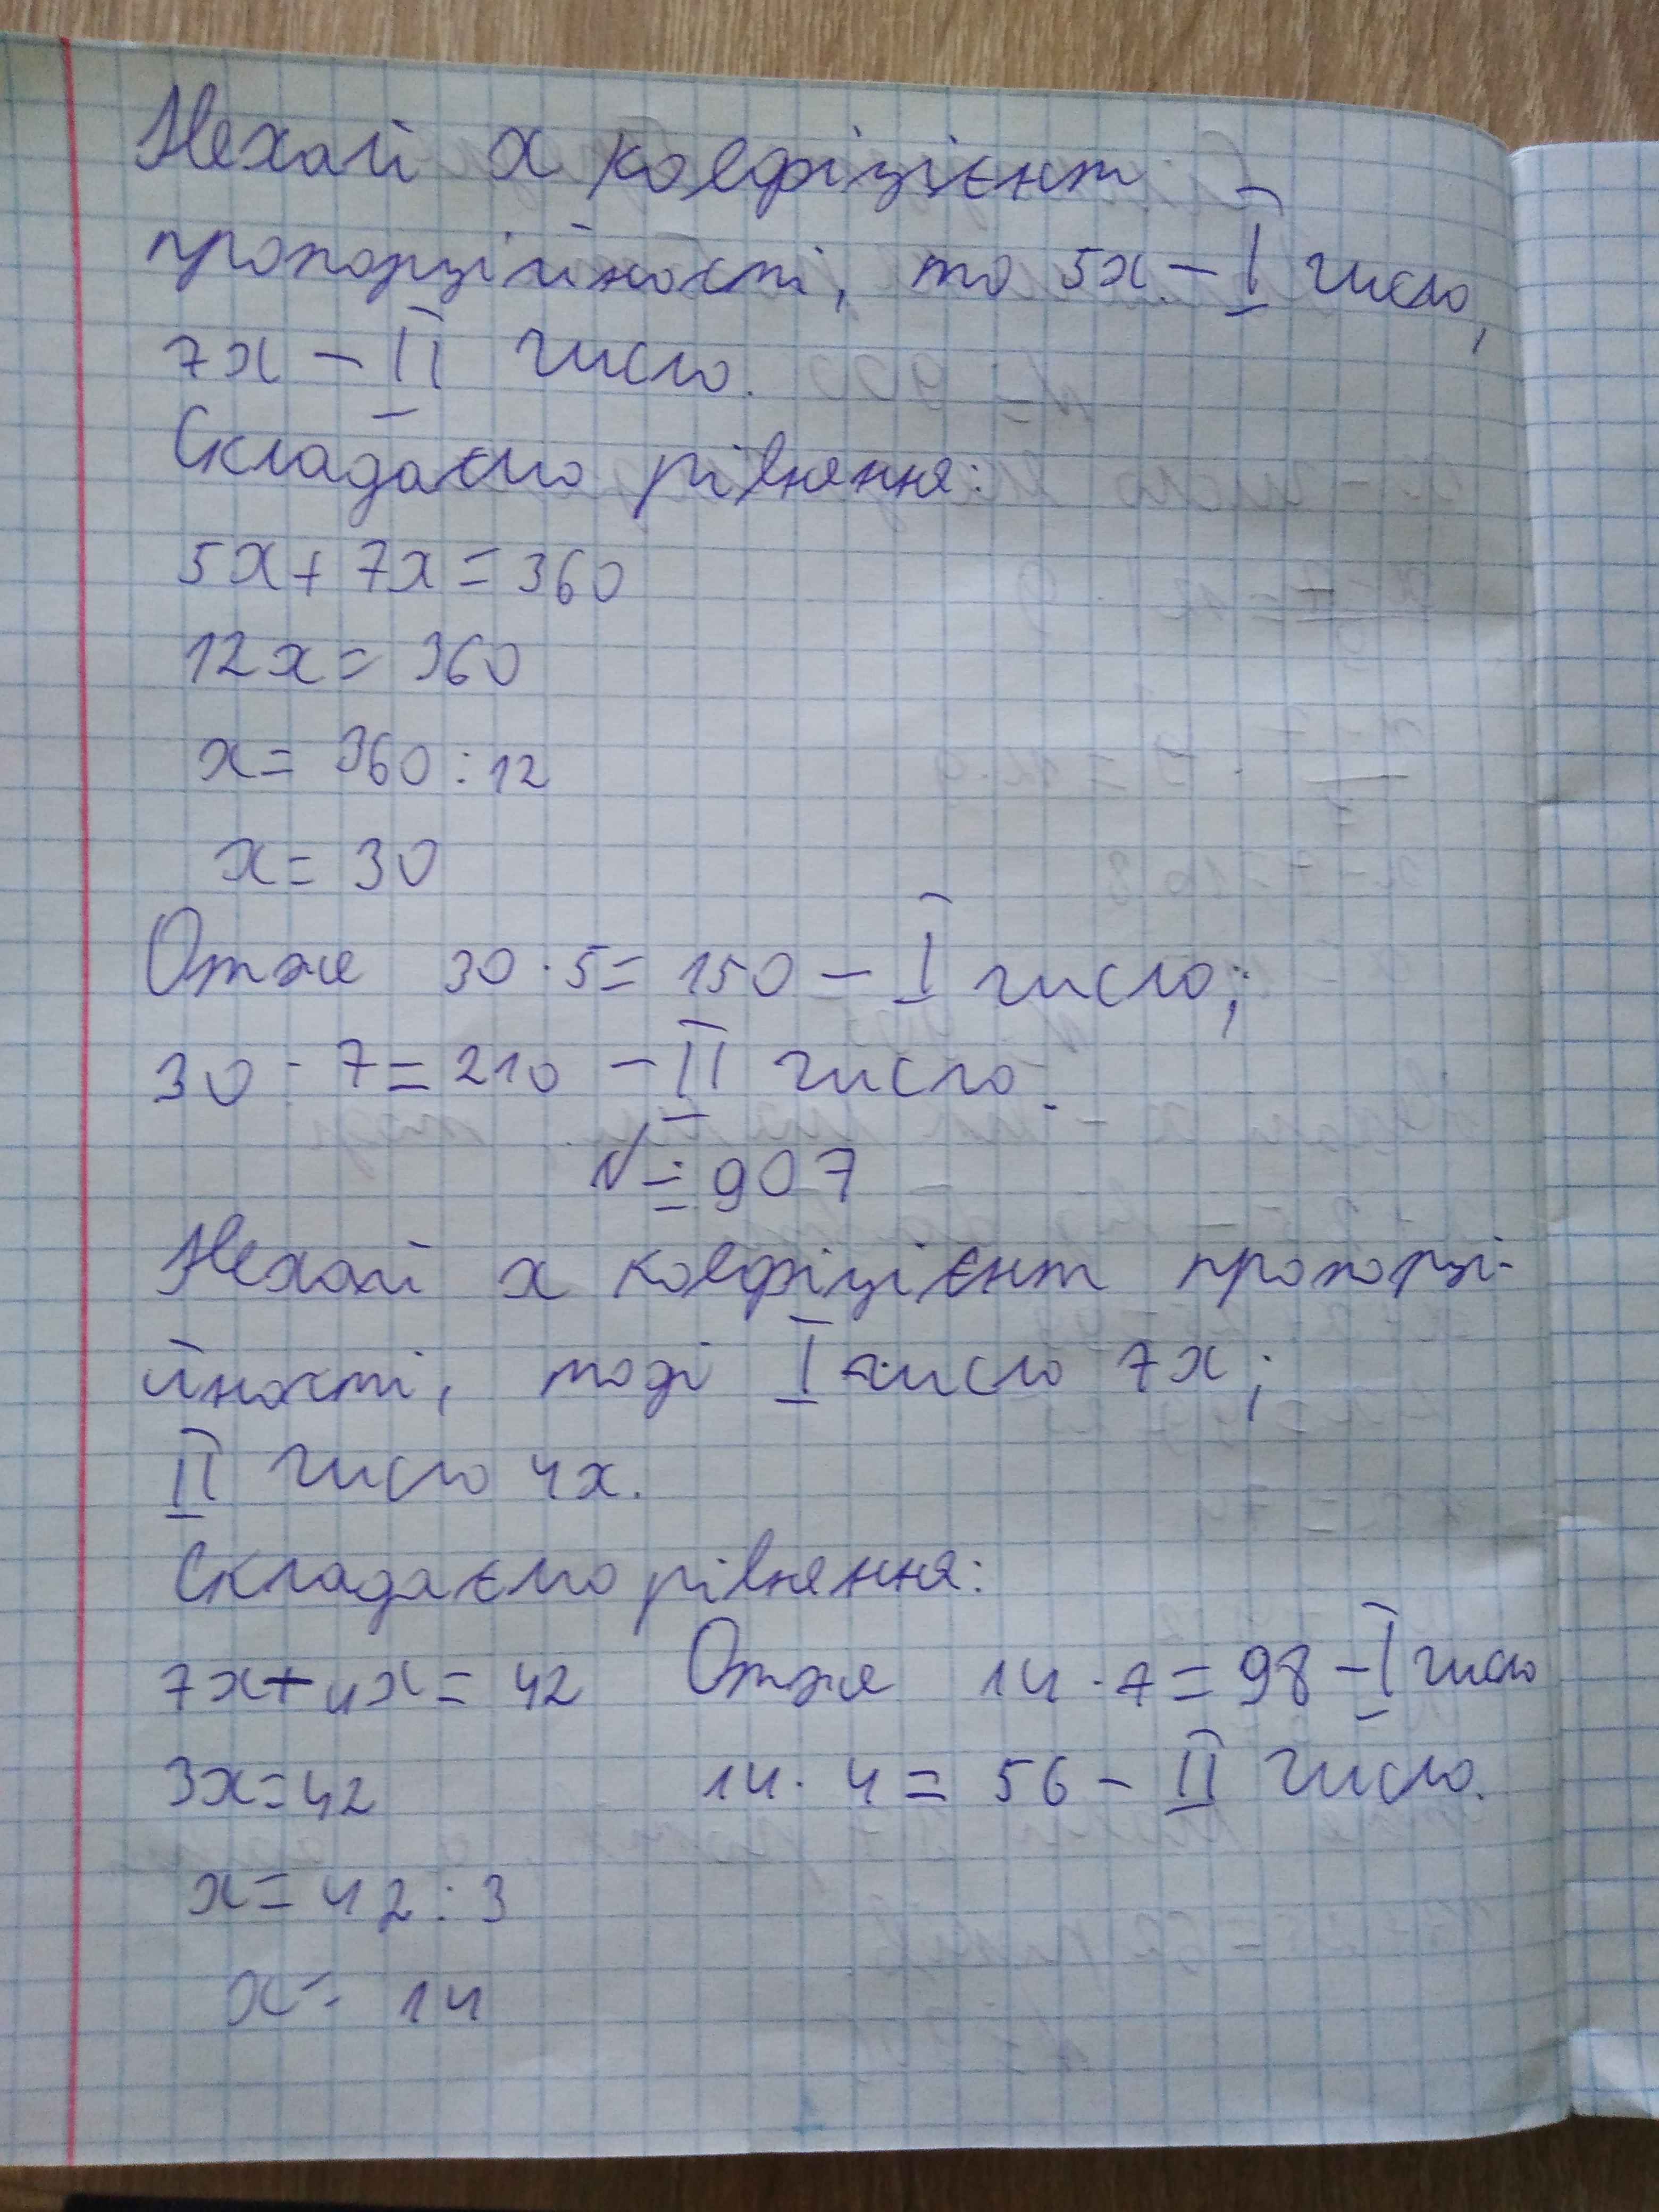 Нехай x коефіцієнт
пропорційності, то 5x – I число,
7x – II число.
Складаємо рівняння:
5x + 7x = 360
12x = 360
x = 360 : 12
x = 30
Отже 30 · 5 = 150 – I число;
30 · 7 = 210 – II число.
№ 907
Нехай x коефіцієнт пропорці-
йності, тоді I число 7x;
II число 4x.
Складаємо рівняння:
7x + 4x = 42 Отже 14 · 7 = 98 – I число
3x = 42 14 · 4 = 56 – II число.
x = 42 : 3
x = 14